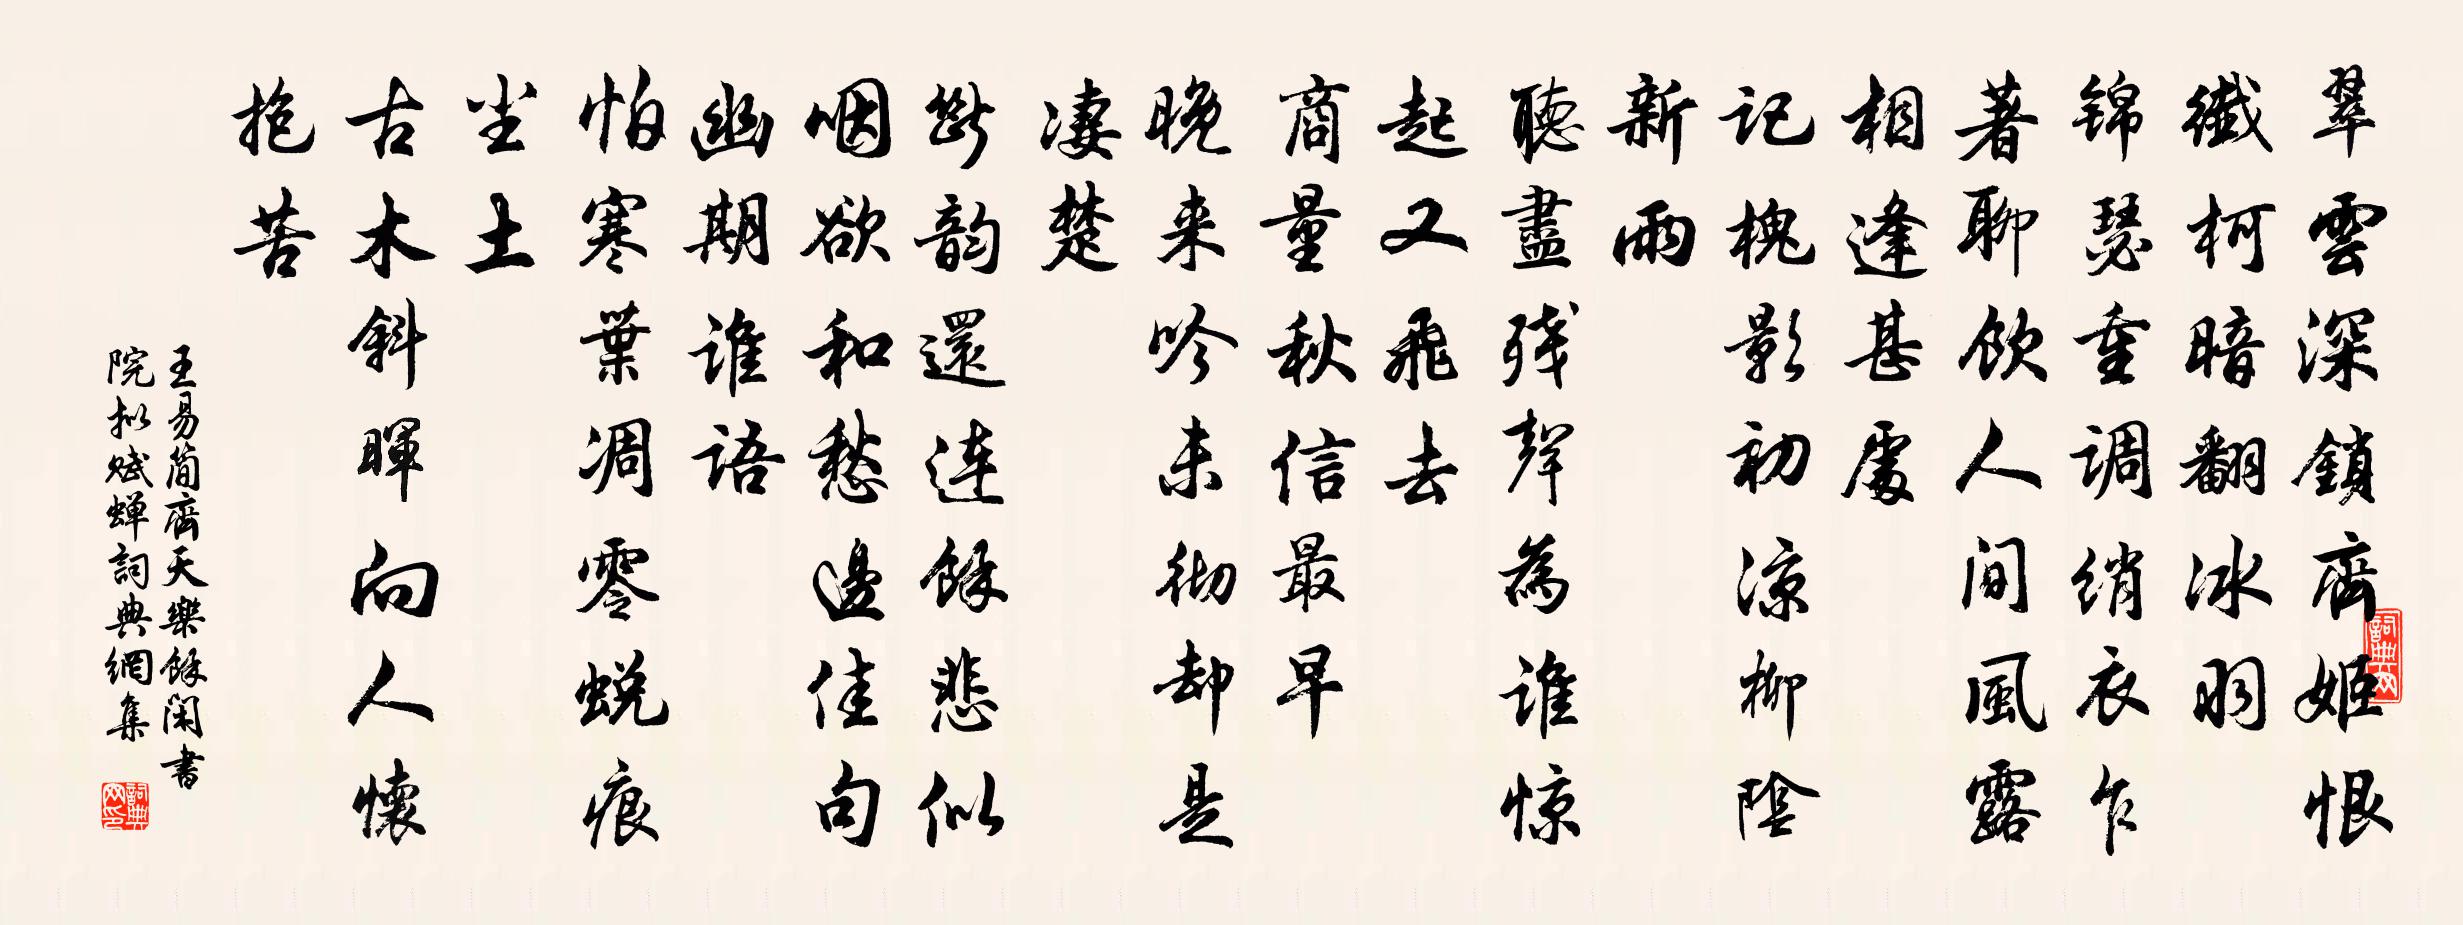 翠雲深鎖齊姬恨
纖柯暗翻冰羽
锦瑟重调绡衣乍
著聊飲人间風露
相逢甚處
记槐影初涼柳陰
新雨
聽盡残聲為谁惊
起又飛去
商量秋信最早
晚来吟未彻却是
凄楚
斷韵還連餘悲似
咽欲和愁邊佳句
幽期谁语
怕寒葉凋零蜕痕
尘土
古木斜暉向人懷
抱苦
王易简齊天樂餘闲書
院拟赋蝉詞典網集
詞典网
詞典网印